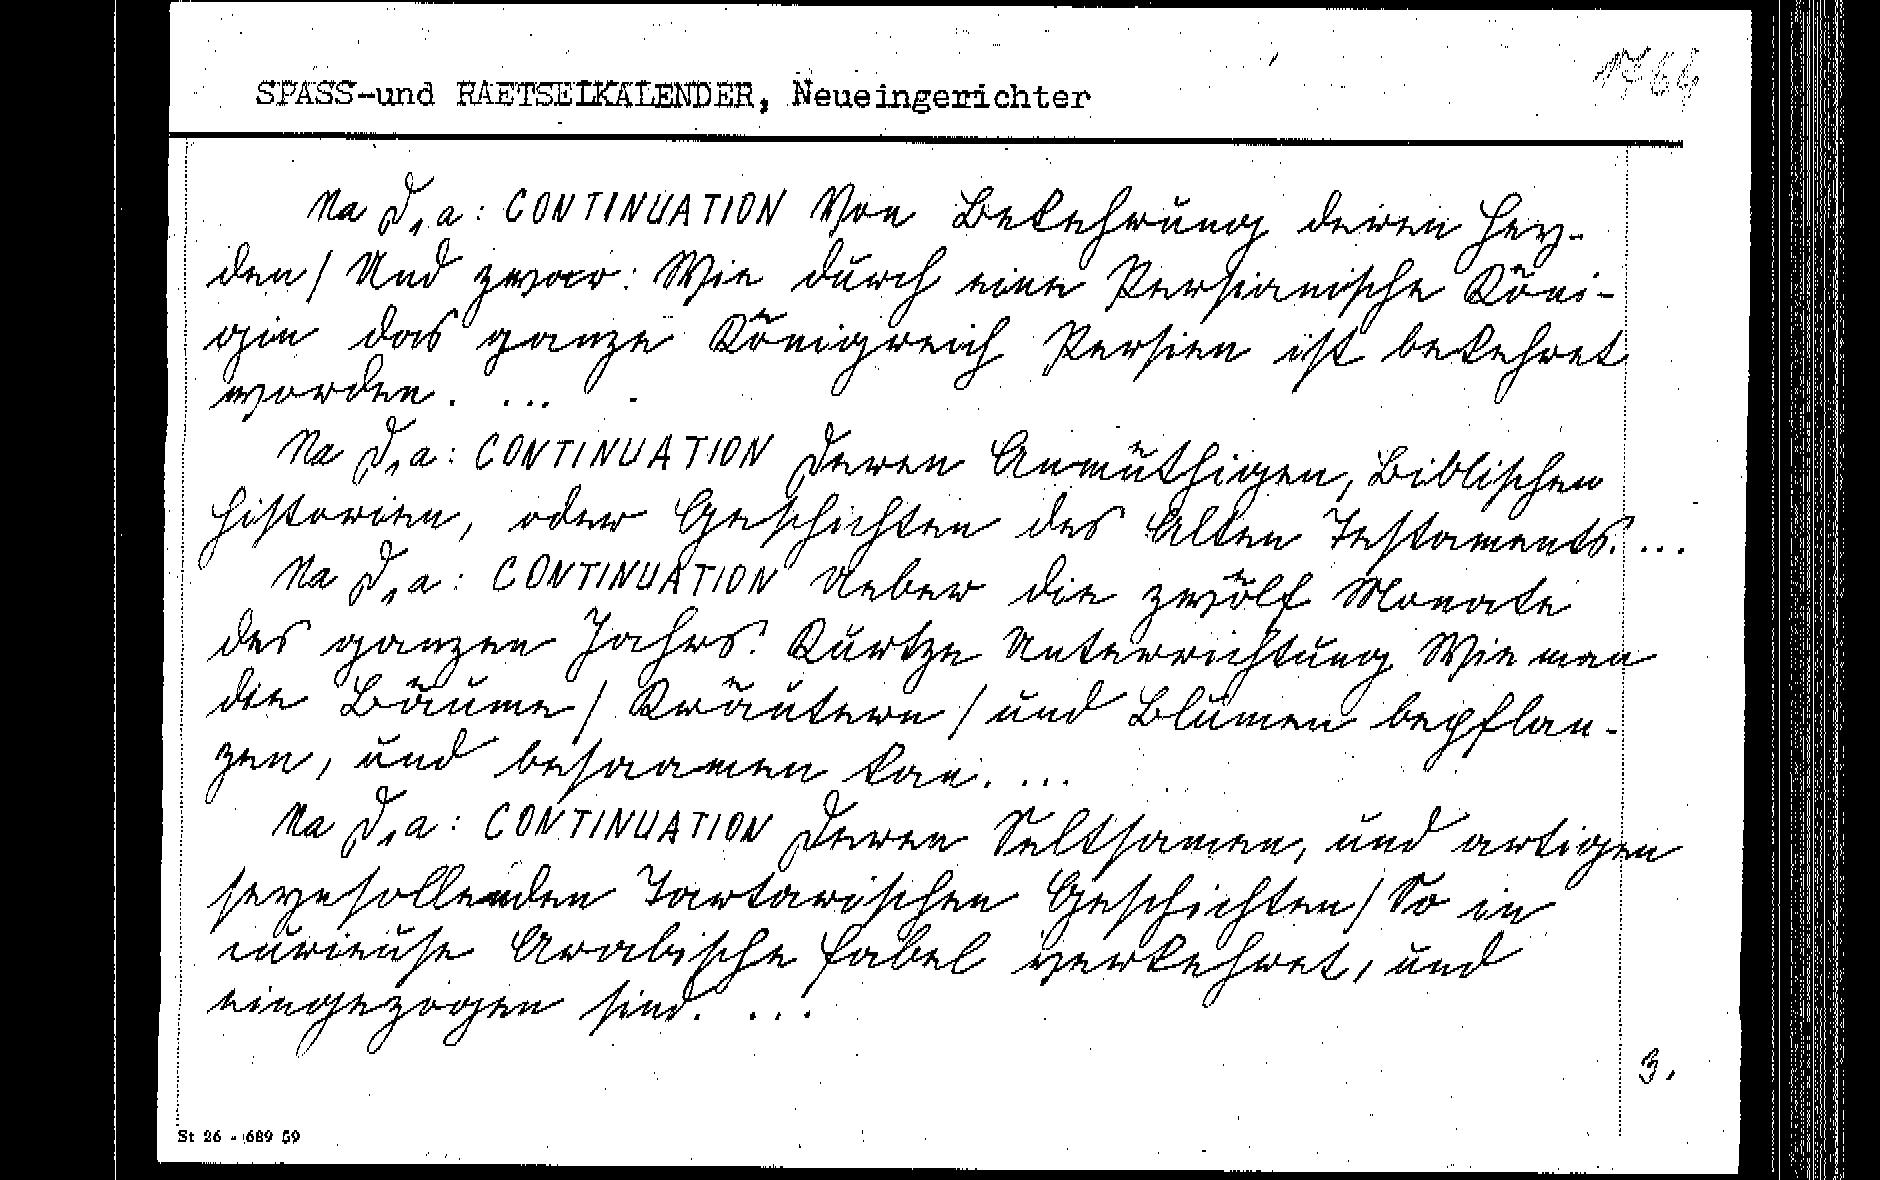 SPASS-und RAETSELKALENDER, Neueingerichter
1764
Na d,a: CONTINUATION Von Bekehrung deren Hey-
den/ Und zwar: Wie durch eine Persianische Köni-
gin das ganze Königreich Persien ist bekehret
worden. ...
Na d,a: CONTINUATION Deren Anmüthigen, Biblischen
Historien, oder Geschichten des Alten Testaments. ...
Na d,a: CONTINUATION Ueber die zwölf Monate
des ganzen Jahrs. Kurtze Unterrichtung Wie man
die Bäume/ Kräutern/ und Blumen bepflan-
zen, und besaamen kan. ...
Na d,a: CONTINUATION Deren Seltsamen, und artigen
seynsollenden Tartarischen Geschichten/ So in
curieuse Arabische Fabel verkehret, und
eingezogen sind. ...
3.
St 26 - 689 59